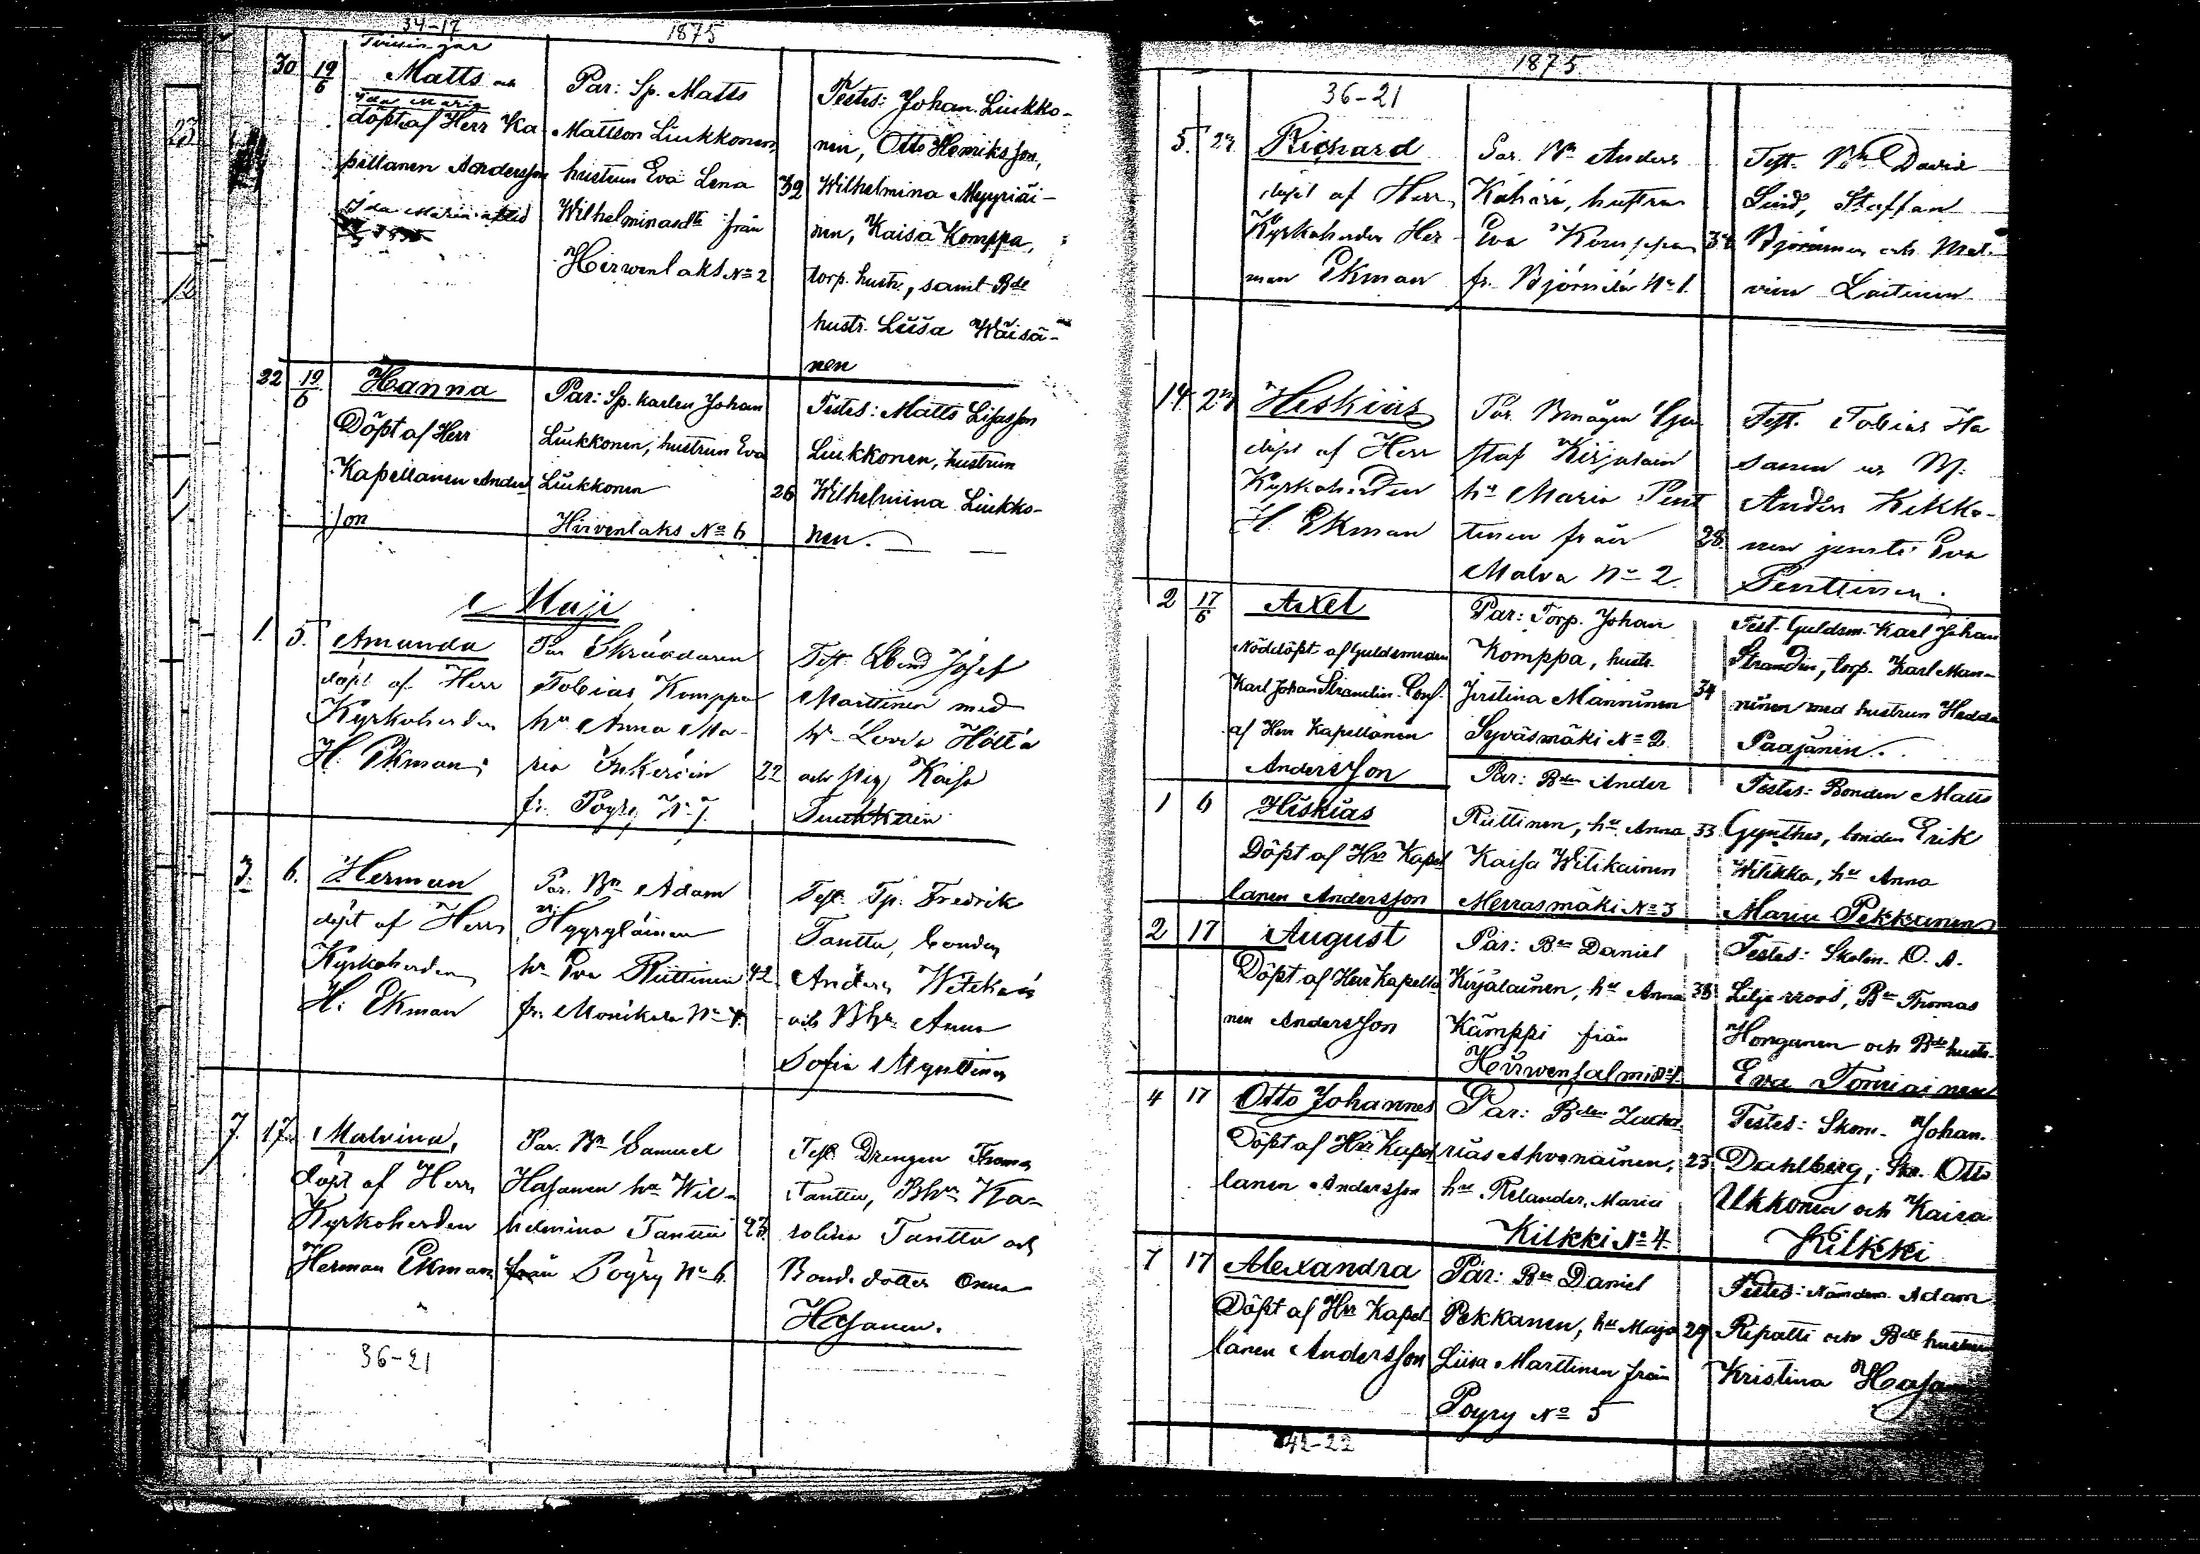 34-17
1875
Tvillingar
30 19/6 Matts och
Ida Maria
döpt af Herr Ka
pellanen Andersson
Ida Maria
Par: Sp. Matts
Mattson Liukkonen,
hustrun Eva Lena 32
Wilhelminasdtr från
Hirwenlaks No 2
Testes: Johan Liukko-
nen, Otto Henriksson,
Wilhelmina Myyriäi-
nen, Kaisa Komppa,
torp. hustr., samt Bde
hustr. Liisa Wäisä-
nen
22 19/6 Hanna
Döpt af Herr
Kapellanen Anders
son
Par: Sp. karlen Johan
Liukkonen, hustrun Eva
Liukkonen 26
Hirvenlaks No 6
Testes: Matts
Liukkonen, hustrun
Wilhelmina Liukko-
nen.
Maji
1. 5. Amanda
döpt af Herr
Kyrkoherden
H. Ekman
Par Skräddaren
Tobias Komppa
hu Anna Ma-
ria Inkeröin 22
fr. Pöyry No 7.
Test. Josef
Marttinen med
hu Lovisa
och pig Kaisa
3. 6. Herman
döpt af Herr
Kyrkoherden
H. Ekman
Par. Bn Adam
Hyyryläinen
hu Eva Riittinen 42
fr. Monikala No 4.
Test. Tp. Fredrik
Tanttu, bonden
Anders
och Bhu Anna
Sofia Mynttinen
7. 17. Malvina,
döpt af Herr
Kyrkoherden
Herman Ekman
Par. Bn Samuel
Hasanen hu Wil-
helmina Tanttu 23
från Pöyry No 6.
Test. Drengen Thomas
Tanttu, Bhu Ka-
rolina Tanttu och
Bond. dotter Anna
Hasanen.
36-21
1875
36-21
5. 27. Richard
döpt af Herr
Kyrkoherden Her-
man Ekman
Par. Bn Anders
Kähäri, hustrun
Eva Komppa
fr. Björnilä No 1.
Test. David
Lind, Staffan
Björninen och Mal-
vina Laitinen
14. 27. Heskias
döpt af Herr
Kyrkoherden
H Ekman
Par. Bmågen Gu
staf Kirjalain
hu Maria Pent
tinen från 28
Malva No 2.
Test. Tobias Ha
sanen
Anders Kekko-
nen jemte Eva
Penttinen.
2 17/6 Axel
Nöddöpt af Guldsmeden
Karl Johan Strandin. Conf.
af Herr Kapellanen
Andersson
Par: Torp. Johan
Komppa, hustr.
Kristina Manninen 34
Syväsmäki No 2.
Test. Guldsm. Karl Johan
Strandin, torp. Karl Man-
ninen med hustrun Hedda
Paajanen.
1 6 Hiskias
Döpt af Hrr Kapel
lanen Andersson
Par: Bden Ander
Riittinen, hu Anna 33
Kaisa Witikainen
Merrasmäki No 3
Testes: Bonden Matts
Gynther, bonden Erik
Witikka, hu Anna
Maria Pekkanen
2 17 August
Döpt af Herr Kapella
nen Andersson
Par: Bn Daniel
Kirjalainen, hu Anna 38
Kämppi från
Hirwensalmi No 1.
Testes: Skolm. O. A.
Liljeroos, Bn Thomas
Honganen och Bde hustr.
Eva Torniainen
4 17 Otto Johannes
Döpt af Hrr Kapel
lanen Andersson
Par: Bden Zacha
rias Ahvonainen, 23
hu Relander, Maria
Kilkki No 4.
Testes: Skom. Johan
Dahlberg, Skr. Otto
Ukkonen och Kaisa
Kilkki
7 17 Alexandra
Döpt af Hrr Kapel
lanen Andersson
Par: Bn Daniel
Pekkanen, hu Maja 29
Liisa Marttinen från
Pöyry No 5
Testes: Nämdem. Adam
Ripatti och Bde hustrun
Kristina Hasa
42-22